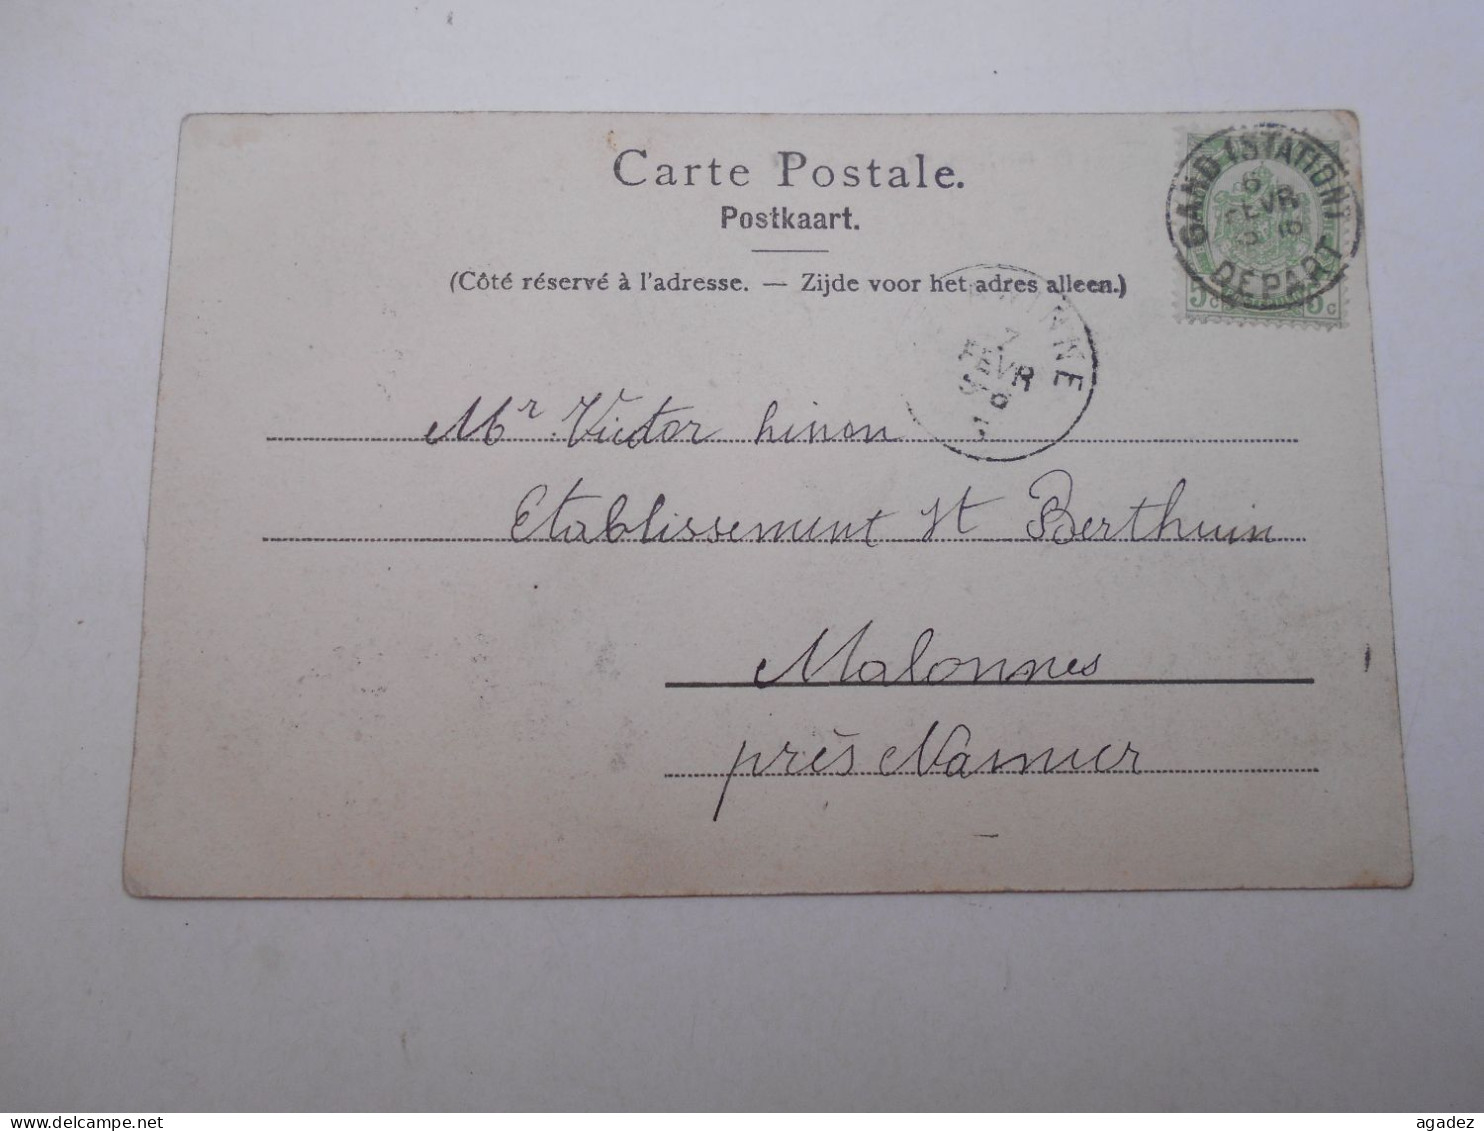 Carte Postale.
Postkaart.
(Côté réservé à l'adresse. — Zijde voor het adres alleen.)
GAND (STATION)
6
FEVR
DEPART
5c 5c
7
FEVR
Mr Victor
Etablissement St Berthuin
Malonnes
près Namur
agadez